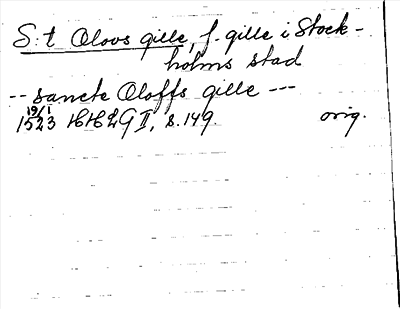 S:t Olovs gille, f. gille i Stock-
holms stad
-- sancte Oloffs gille ---
19/1
1523 HHLG II, s. 149. orig.